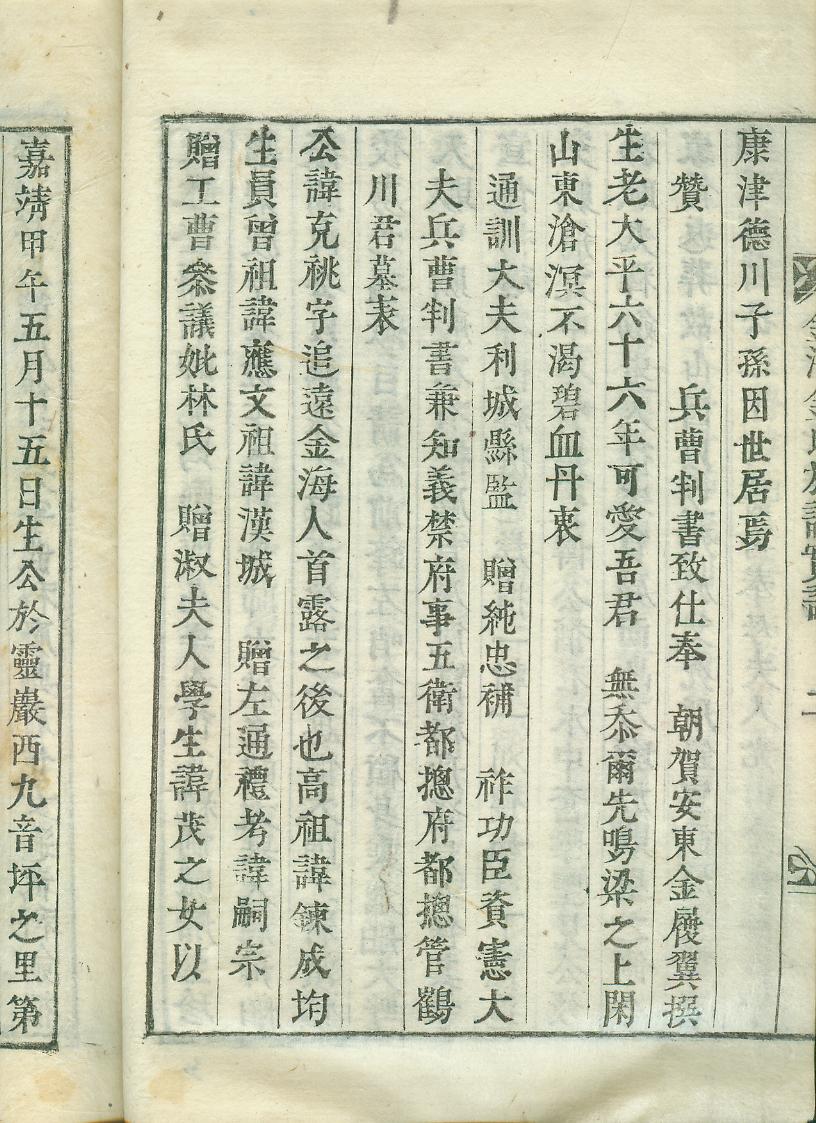 康津德川子孫因世居焉
贊　兵曹判書致仕奉　朝賀安東金履翼撰
生老大平六十六年可愛吾君　無忝爾先鳴梁之上閑
山東滄溟不渴碧血丹衷
通訓大夫利城縣監　贈純忠補　祚功臣資憲大
夫兵曹判書兼知義禁府事五衛都摠府都摠管鶴
川君墓表
公諱克祧字追遠金海人首露之後也高祖諱鍊成均
生員曾祖諱應文祖諱漢城　贈左通禮考諱嗣宗
贈工曹叅議妣林氏　贈淑夫人學生諱茂之女以
嘉靖甲午五月十五日生公於靈巖西九音坪之里第